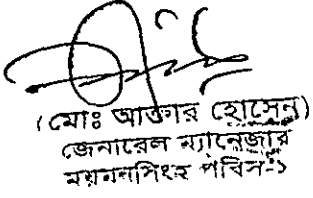 (মোঃ আক্তার হোসেন)
জেনারেল ম্যানেজার
ময়মনসিংহ পবিস-১